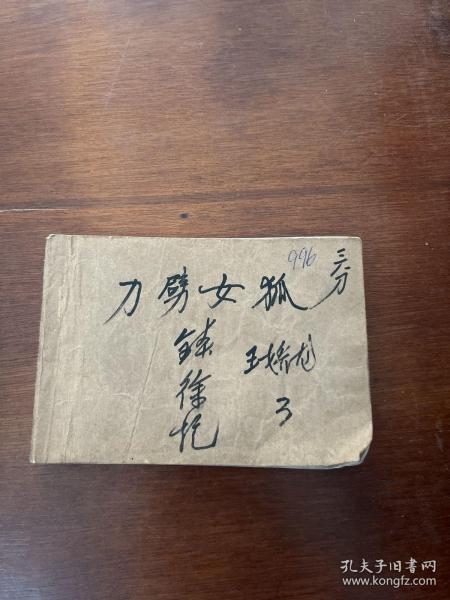 996
三分
刀劈女狐
徐
王娇龙
3
孔夫子旧书网
www.kongfz.com